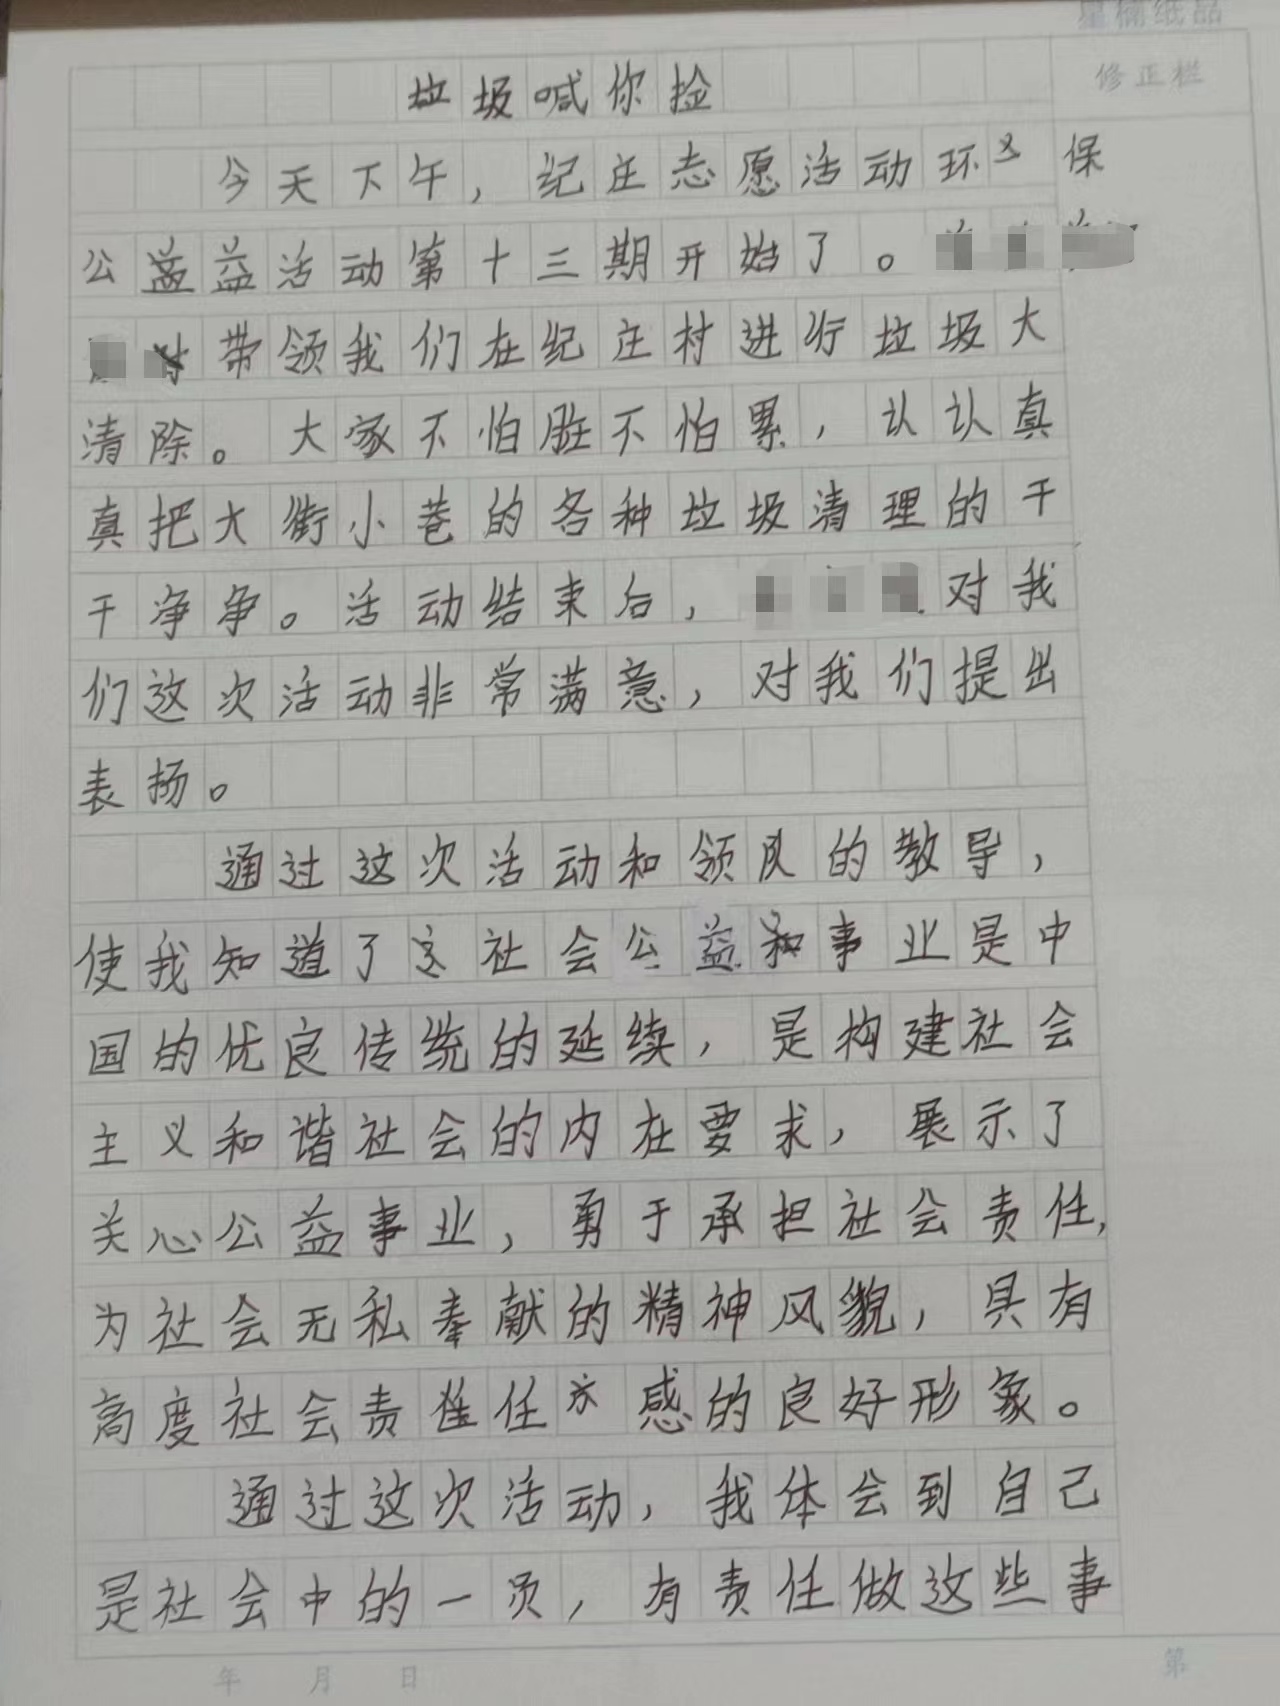 星楠纸品
修正栏
垃圾喊你捡
今天下午，纪庄志愿活动环保
公益益活动第十三期开始了。
对带领我们在纪庄村进行垃圾大
清除。大家不怕脏不怕累，认认真
真把大街小巷的各种垃圾清理的干
干净净。活动结束后，对我
们这次活动非常满意，对我们提出
表扬。
通过这次活动和领队的教导，
使我知道了这社会公益和事业是中
国的优良传统的延续，是构建社会
主义和谐社会的内在要求，展示了
关心公益事业，勇于承担社会责任，
为社会无私奉献的精神风貌，具有
高度社会责任感的良好形象。
通过这次活动，我体会到自己
是社会中的一员，有责任做这些事
年 月 日 第